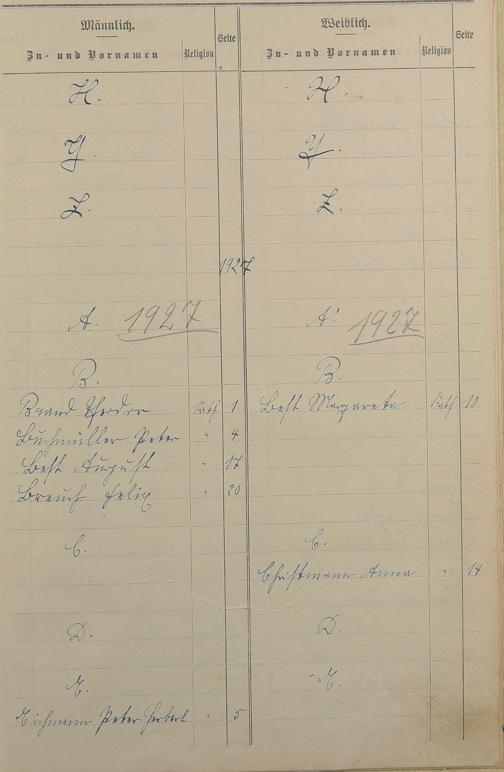 Männlich. Weiblich.
Zu- und Vornamen Religion Seite Zu- und Vornamen Religion Seite
X. X.
Y. Y.
Z. Z.
1927
A. 1927 A. 1927
B. B.
Brand Theodor kath 1 Best Margareta kath 10
Buchmüller Peter " 4
Best August " 17
Breuch Felix " 20
C. C.
Christmann Anna " 14
D. D.
E. E.
Eichmann Peter Herbert " 5